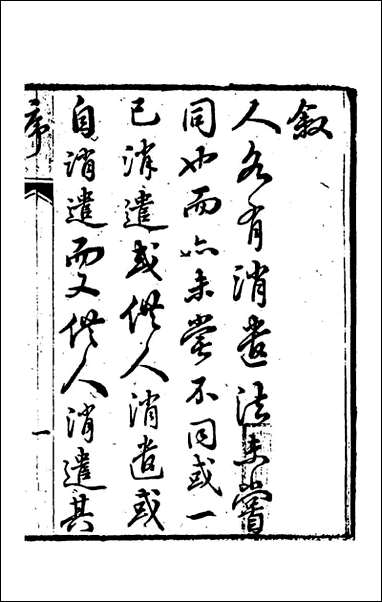 叙
人各有消遣法未嘗
同也而亦未嘗不同或一
己消遣或供人消遣或
自消遣而又供人消遣其
序
一